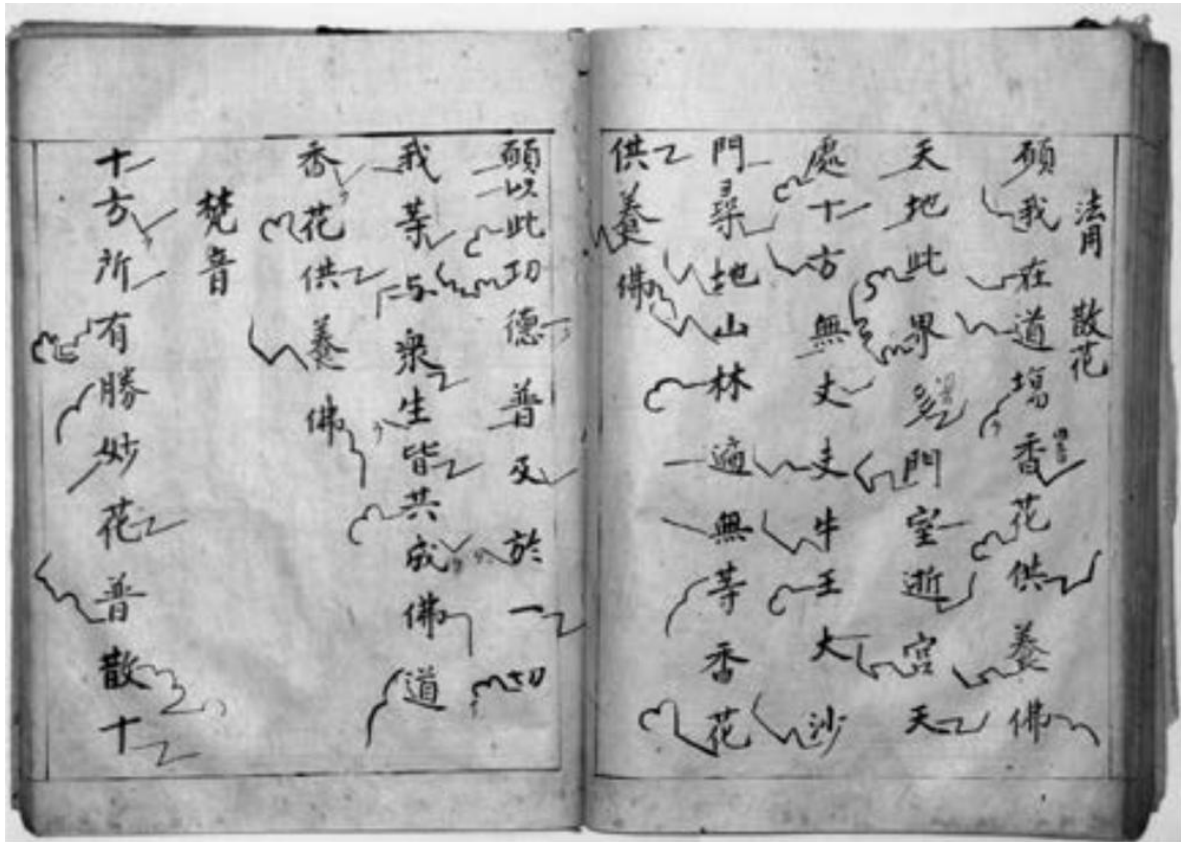 法用 散花
願我在道場香花供養佛
天地此界多門室逝宮天
處十方無丈夫牛王大沙
門尋地山林遍無等香花
供養佛
願以此功德普及於一切
我等与衆生皆共成佛道
香花供養佛
梵音
十方所有勝妙花普散十